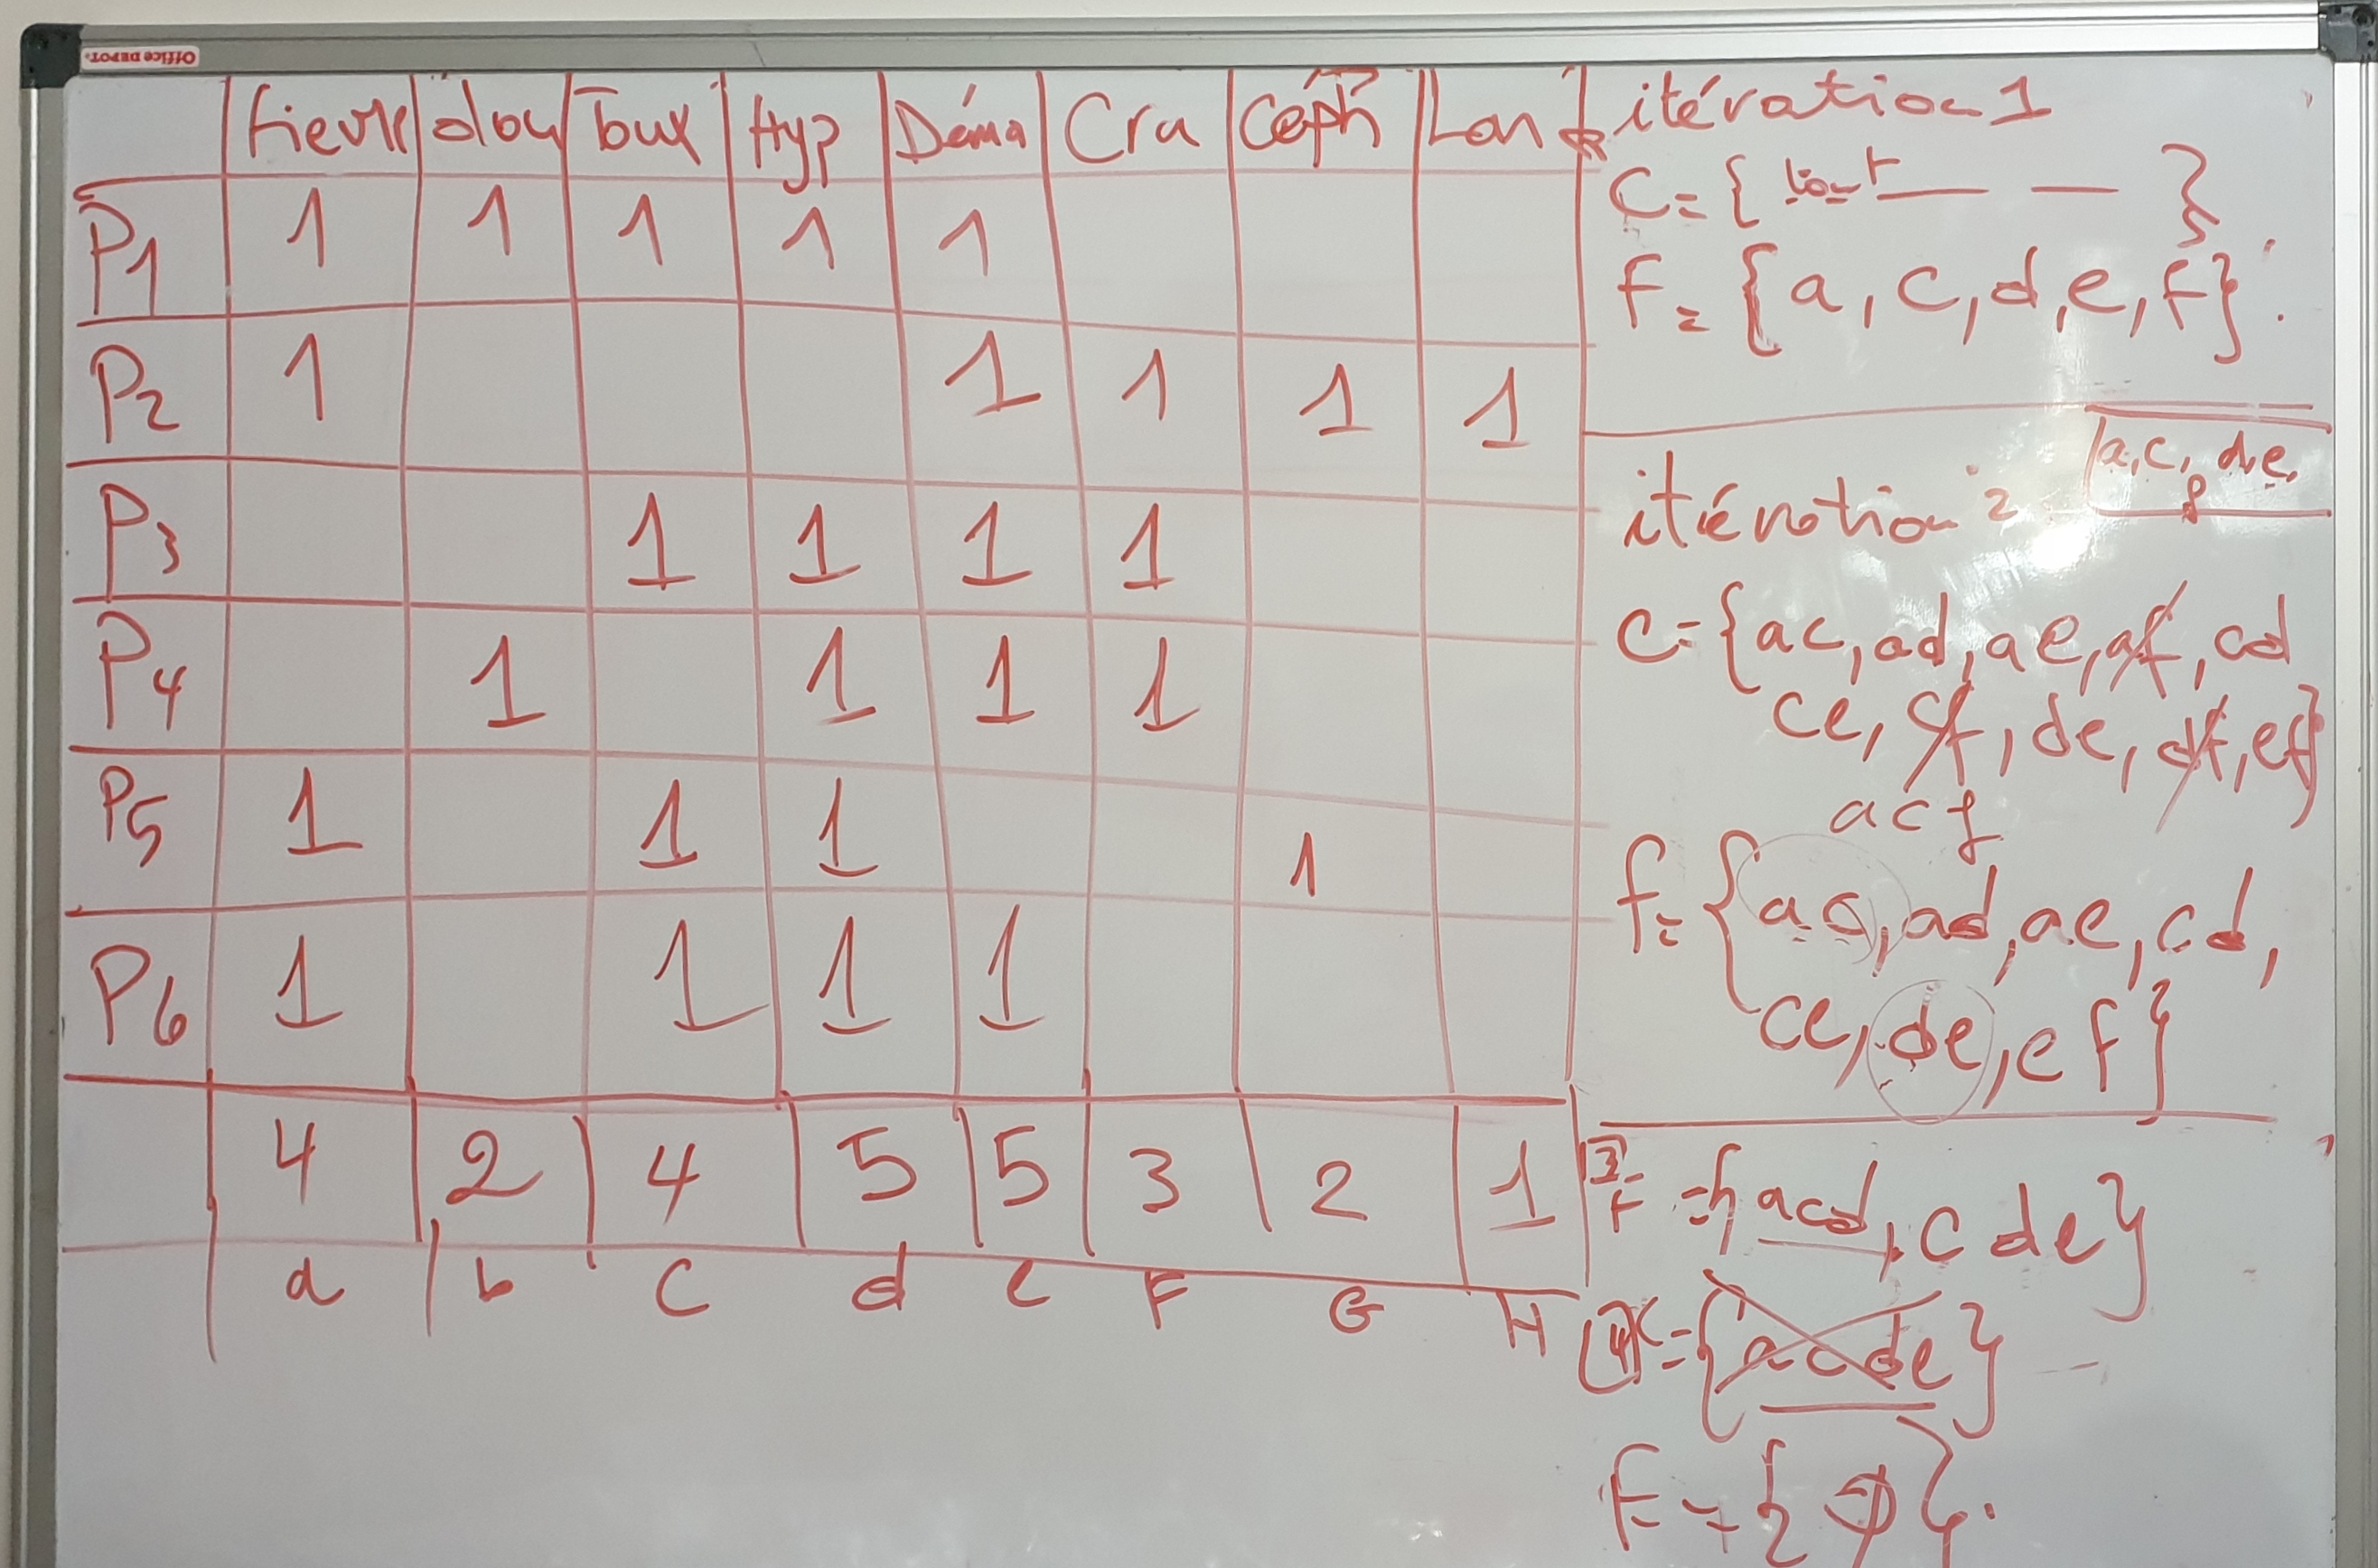 Office DEPOT.
fievre dou Toux Hyp Déma Cra Céph Lan
P1 1 1 1 1 1
P2 1 1 1 1 1
P3 1 1 1 1
P4 1 1 1 1
P5 1 1 1 1
P6 1 1 1 1
4 2 4 5 5 3 2 1
a b c d e F G H
itération 1
C = { tout }
F = {a, c, d, e, f}
itération 2
a, c, d, e,
f
C = {ac, ad, ae, af, cd
ce, cf, de, df, ef}
acf
F = {ac, ad, ae, cd,
ce, de, ef}
3
F = {acd, cde}
4 C = {acde}
F = {∅}.